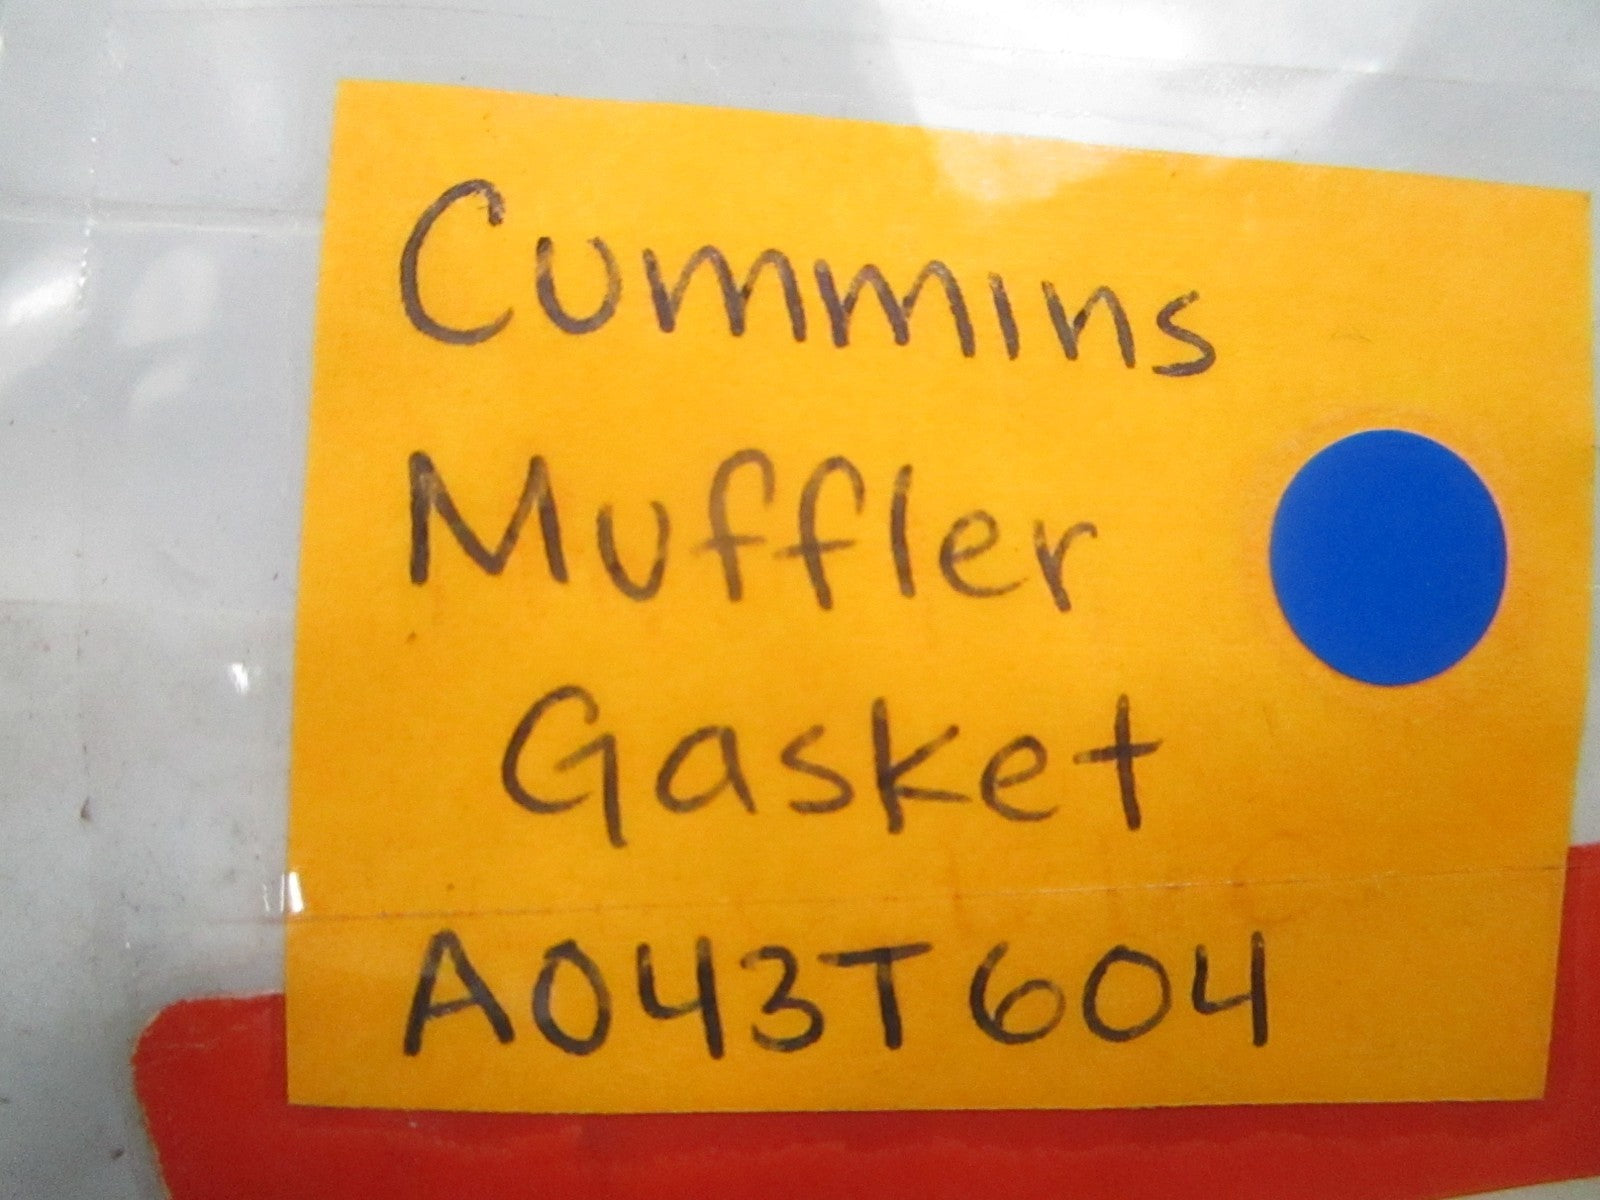 Cummins
Muffler
Gasket
A043T604